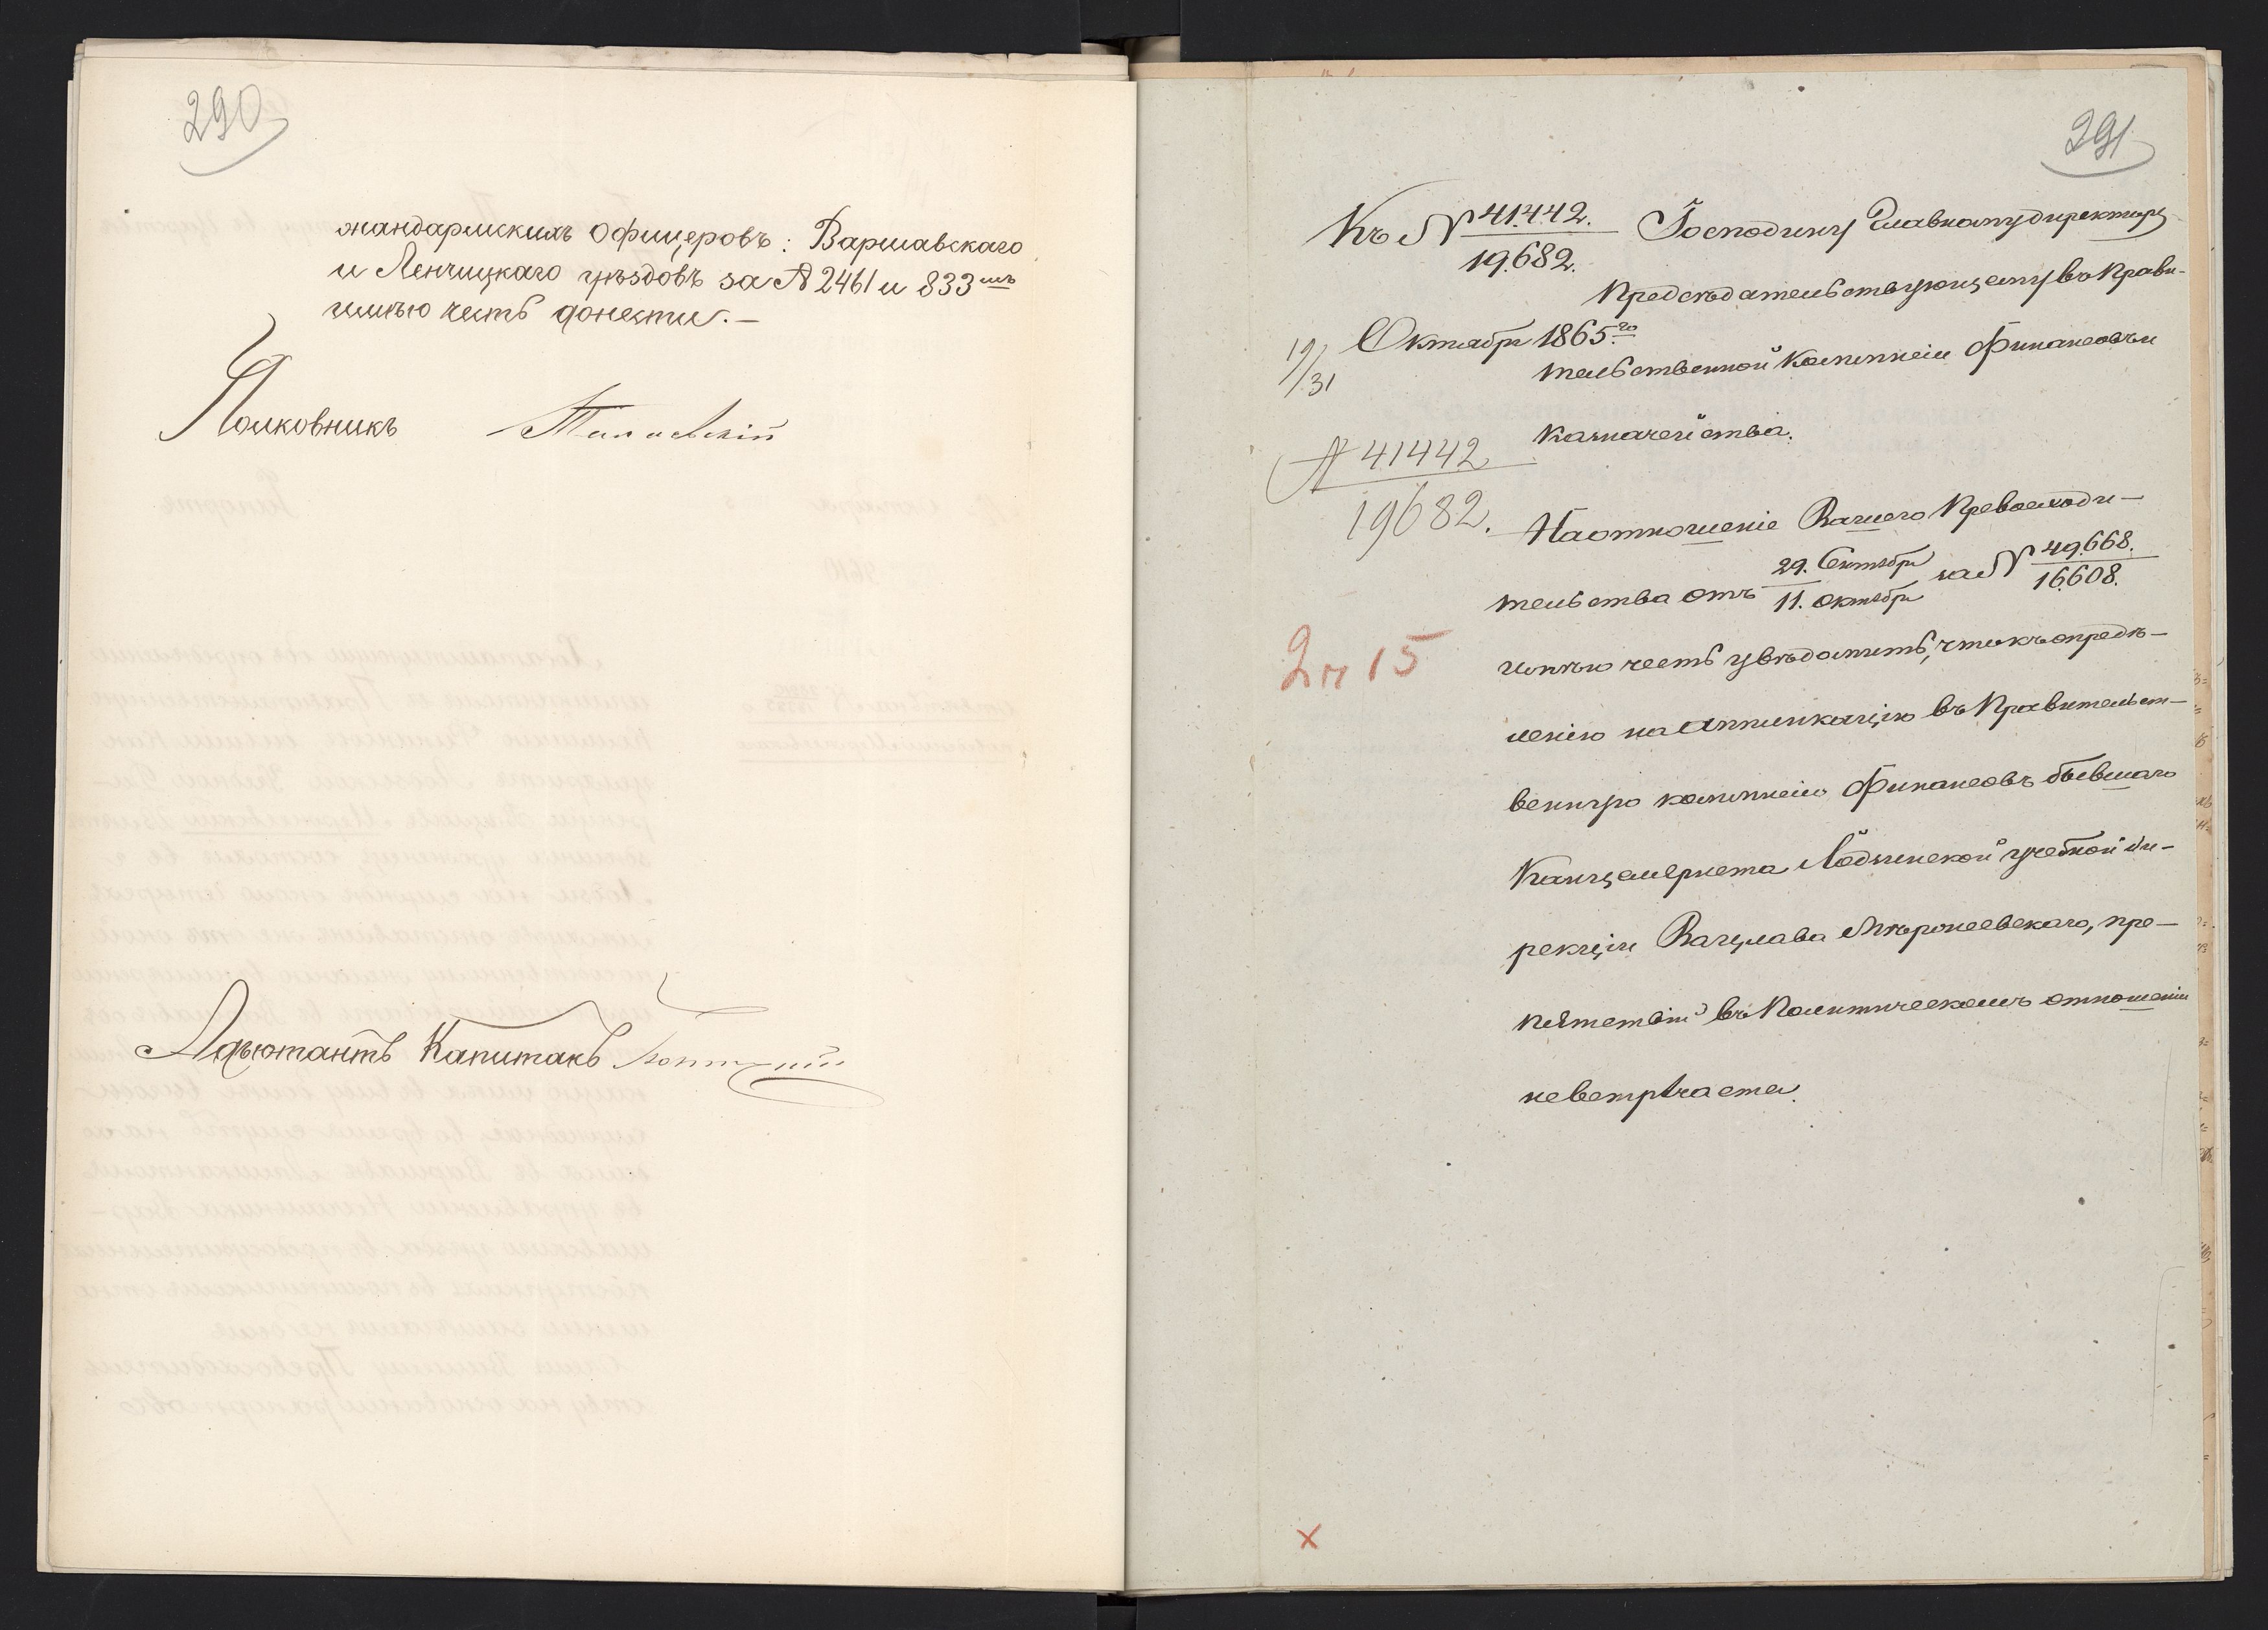 290
жандармскихъ Офицеровъ: Варшавскаго
и Ленчицкаго уѣздовъ за № 2461 и 833мъ
имѣю честь донести.—
Полковникъ
Адъютантъ Капитанъ
291
Къ № 41442.
19682.
19/31 Октября 1865го
№ 41442
19682.
2 п 15
Господину Главному директору
Предсѣдательствующему въ Прави-
тельственной Коммиссіи Финансовъ и
Казначейства.
На отношеніе Вашего Превосходи-
тельства отъ 29. Сентября / 11. Октября за № 49668. / 16608.
имѣю честь увѣдомить, что къ опредѣ-
ленію на аппликацію въ Правительст-
венную коммиссію Финансовъ бывшаго
Канцеляриста Лодзинской учебной Ди-
рекціи Вацлава Мѣросевскаго, пре-
пятствій въ Политическомъ отношеніи
не встрѣчается.